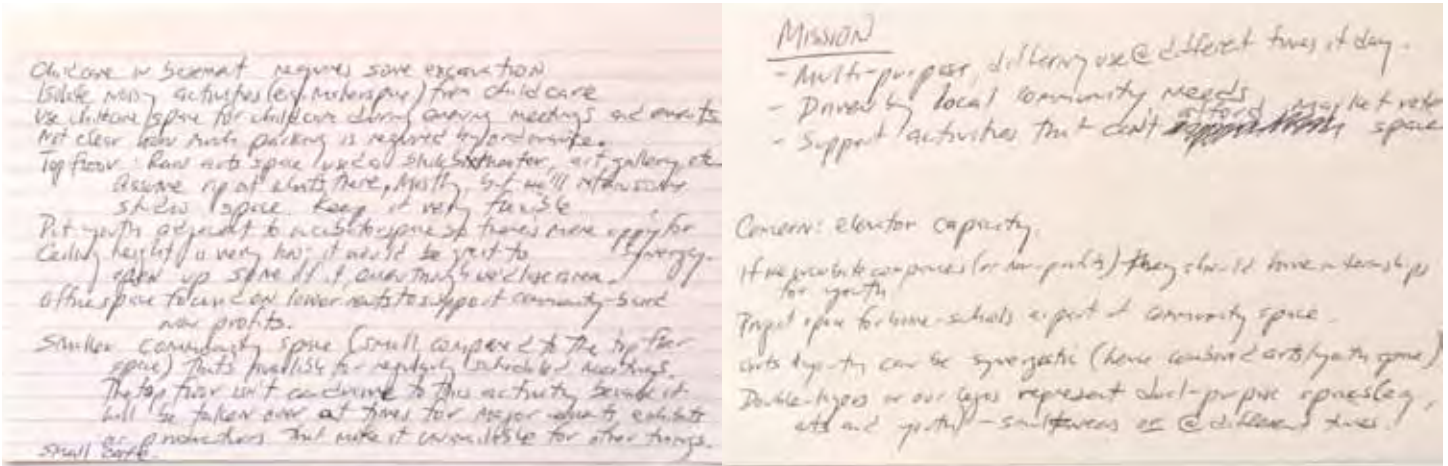 Childcare in basement requires some excavation
Isolate noisy activities (e.g. Makerspace) from childcare
Use childcare space for childcare during evening meetings and events
Not clear how much parking is required by ordinance.
Top floor: Raw arts space used as theater, art gallery, etc.
Assume most events there, mostly, but we'll
space. Keep it very flexible
Put youth adjacent to incubator space so there's more oppty for
synergy.
Ceiling height is very low; it would be great to
open up some of it, even though we'd lose area.
Office space focused on lower rents to support community-based
non profits.
Smaller community space (small compared to the top floor
space) that's available for regularly scheduled meetings.
The top floor isn't conducive to this activity because it
will be taken over at times for major events, exhibits
or productions that make it unavailable for other things.
Small café.
MISSION
- Multi-purpose, differing use @ different times of day.
- Driven by local community needs
- Support activities that can't afford market rate
space
Concern: elevator capacity.
If we incubate companies (or non-profits) they should have internships
for youth
Project space for home-schools as part of community space.
Arts & youth can be synergistic (hence combined arts/youth space)
Double-types in our legos represent dual-purpose spaces (e.g.,
arts and youth) - simultaneous or @ different times.